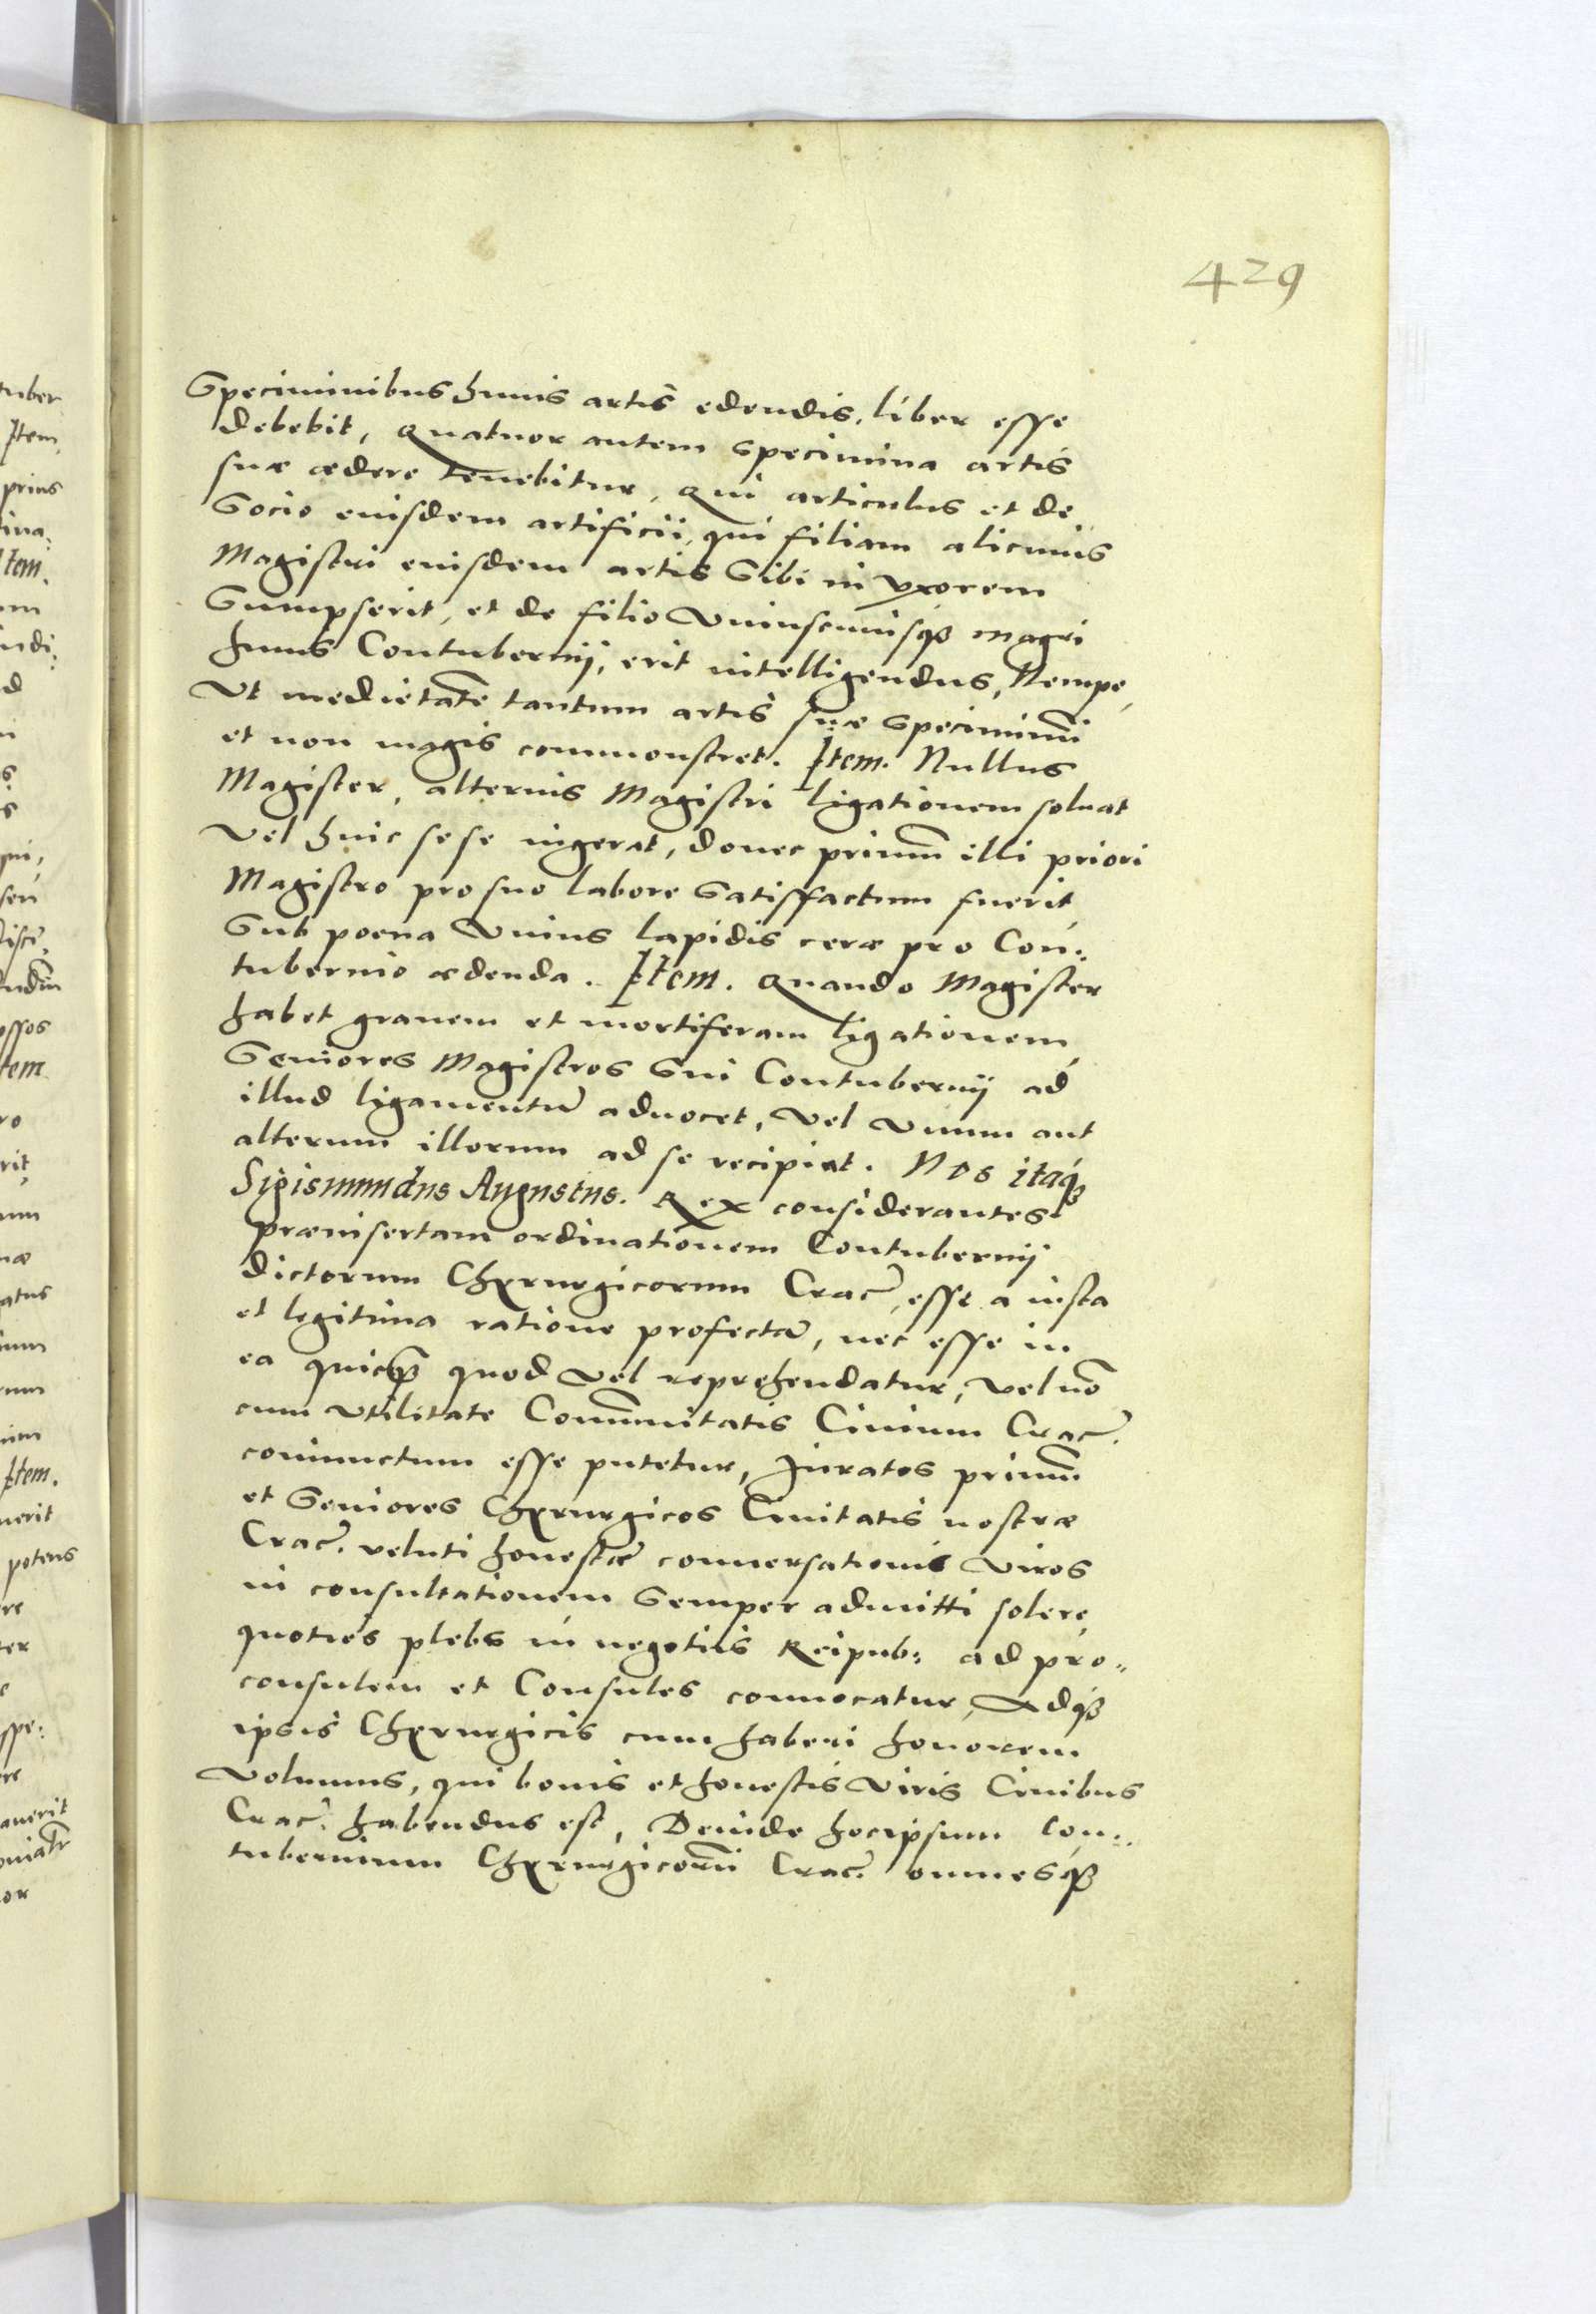 429
Speciminibus huius artis edendis, liber esse
debebit, Quatuor autem specimina artis
suæ ædere tenebitur, Qui articulus et de
Socio eiusdem artificii, qui filiam alicuius
Magistri eiusdem artis Sibi in vxorem
Sumpserit, et de filio Vniuscuiusqȝ magri
huius Contubernij, erit intelligendus, Nempe,
Vt medietatē tantum artis suæ speciminū
et non magis commonstret. Item. Nullus
Magister, alterius Magistri ligationem soluat
Vel huic sese ingerat, donec primū illi priori
Magistro pro suo labore Satisfactum fuerit,
Sub poena Vnius lapidis ceræ pro Con:
tubernio ædenda. Item. Quando Magister
habet grauem et mortiferam ligationem,
Seniores Magistros Sui Contubernij ad
illud ligamentū aduocet, Vel Vnum aut
alterum illorum ad se recipiat. Nos itaqȝ
Sigismundus Augustus. Rex considerantes
præinsertam ordinationem Contubernij
dictorum Chyrurgicorum Crac̃, esse a iusta
et legitima ratione profectā, nec esse in
ea quicq̃ quod Vel reprehendatur, vel nō
cum Vtilitate Com̄unitatis Ciuium Crac̃.
coniunctum esse putetur, Iuratos primū
et Seniores Chyrurgicos Ciuitatis nostræ
Crac̃. veluti honestæ conuersationis Viros
in consultationem Semper admitti solere,
quoties plebs in negotiis Reipub: ad pro:
consulem et Consules conuocatur, Adqȝ
ipsis Chyrurgicis eum haberi honorem
Volumus, qui bonis et honestis Viris Ciuibus
Crac̃. habendus est, Deinde hocipsum Con:
tubernium Chyrurgicorū Crac̃. omnesqȝ